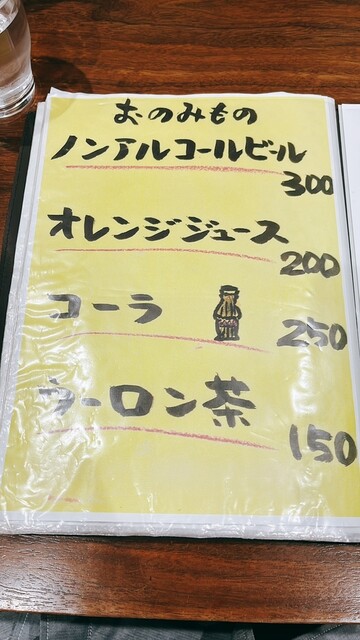 おのみもの
ノンアルコールビール
300
オレンジジュース
200
コーラ
250
ウーロン茶
150